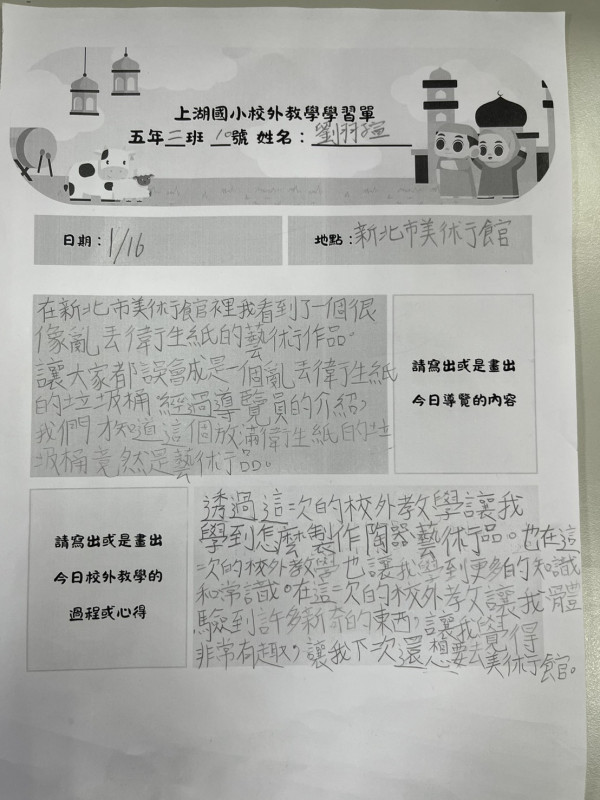 上湖國小校外教學學習單
五年三班 10號 姓名：劉羽瑄
日期：1/16
地點：新北市美術館
在新北市美術館裡我看到了一個很
像亂丟衛生紙的藝術作品。
讓大家都誤會成是一個亂丟衛生紙
的垃圾桶，經過導覽員的介紹，
我們才知道這個放滿衛生紙的垃
圾桶竟然是藝術品。
請寫出或是畫出
今日導覽的內容
請寫出或是畫出
今日校外教學的
過程或心得
透過這次的校外教學讓我
學到怎麼製作陶器藝術品。也在這
次的校外教學也讓我學到更多的知識
和常識。在這次的校外教讓我體
驗到許多新奇的東西，讓我覺得
非常有趣，讓我下次還想要去美術館。